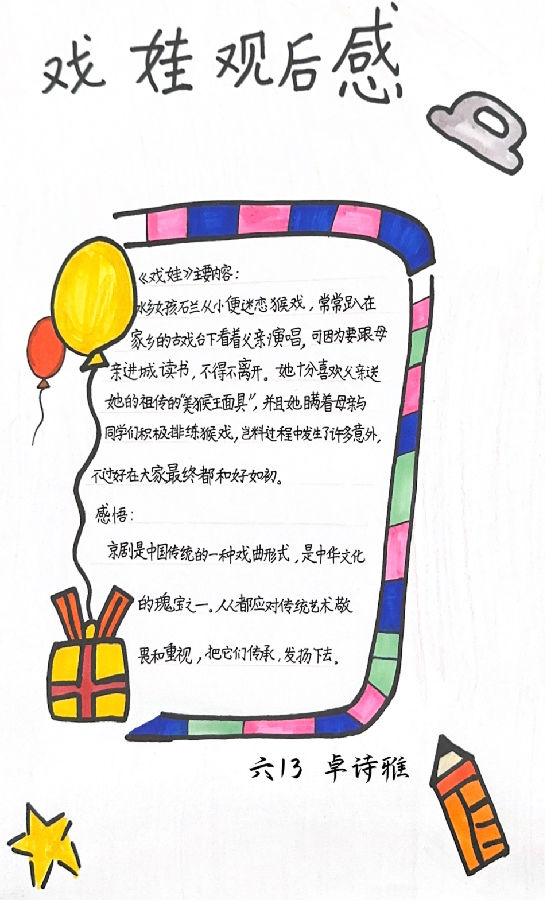 戏娃观后感
《戏娃》主要内容：
水乡女孩石兰从小便迷恋猴戏，常常趴在
家乡的古戏台下看着父亲演唱，可因为要跟母
亲进城读书，不得不离开。她十分喜欢父亲送
她的祖传的"美猴王面具"，并且她瞒着母亲与
同学们积极排练猴戏，岂料过程中发生了许多意外，
不过好在大家最终都和好如初。
感悟：
京剧是中国传统的一种戏曲形式，是中华文化
的瑰宝之一。人人都应对传统艺术敬
畏和重视，把它们传承，发扬下去。
六13 卓诗雅